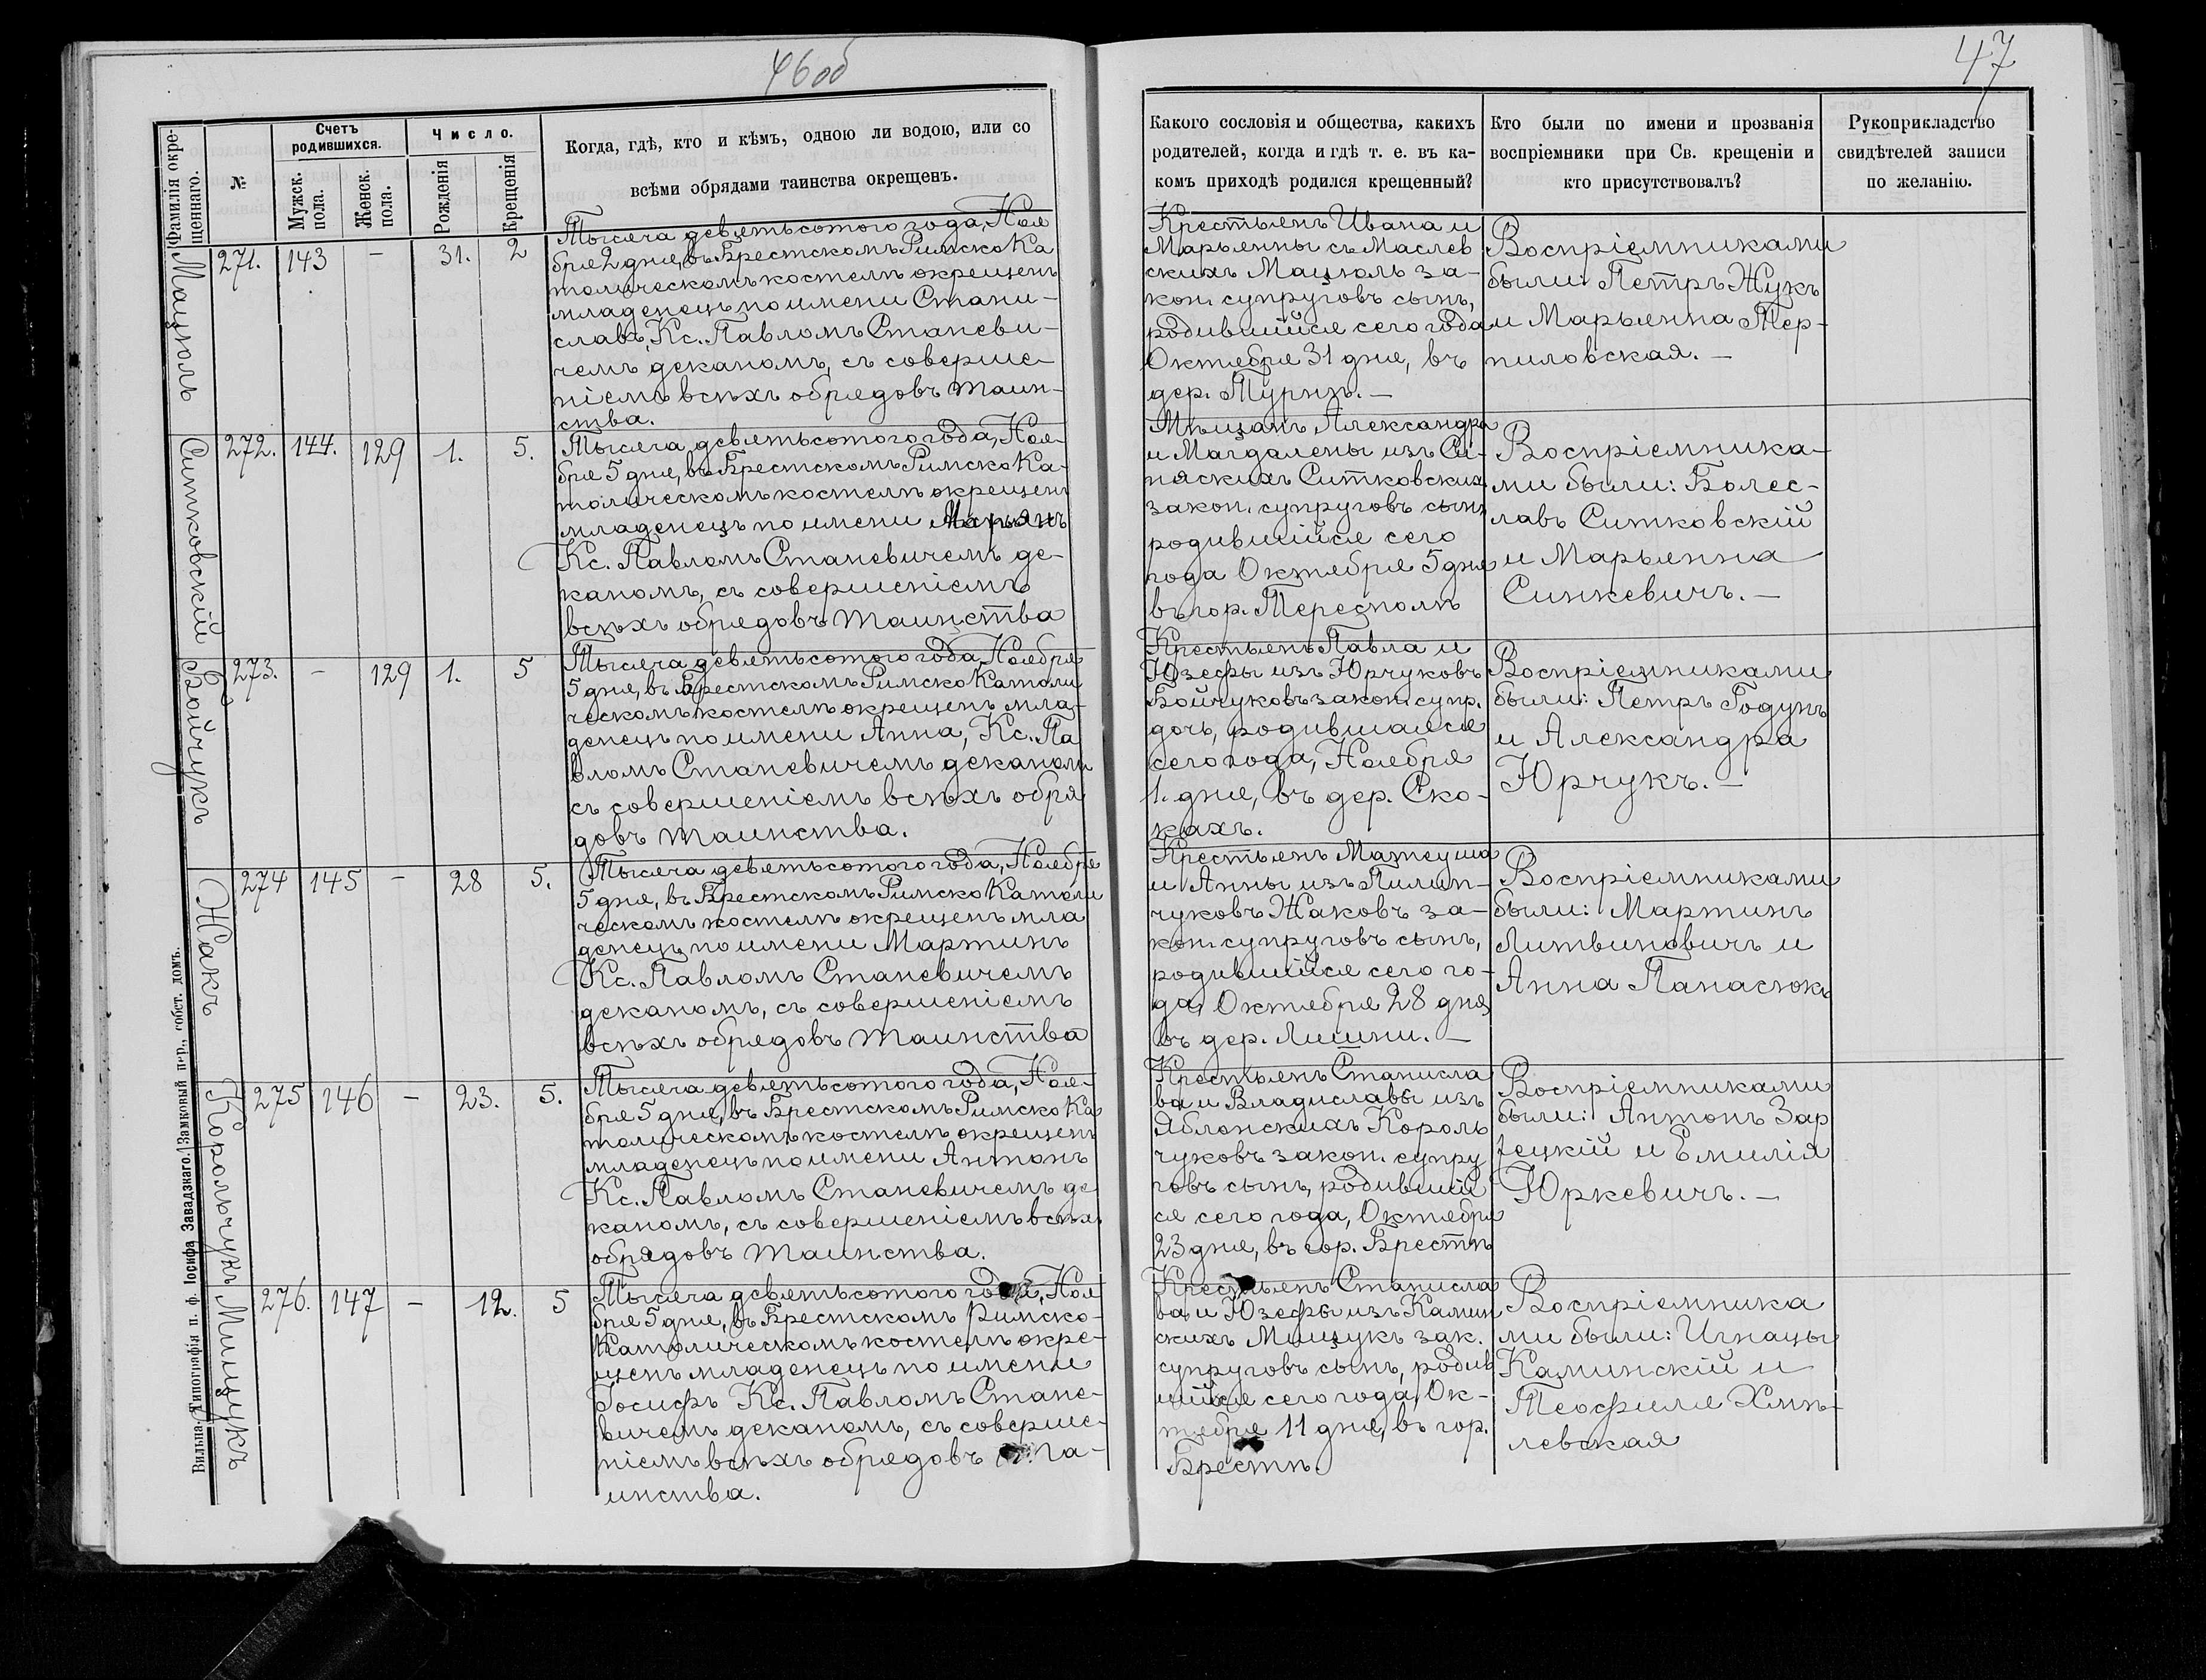 46об
47
Фамилія окре-
щеннаго.
№
Счетъ
родившихся.
Мужск.
пола.
Женск.
пола.
Число.
Рожденія
Крещенія
Когда, гдѣ, кто и кѣмъ, одною ли водою, или со
всѣми обрядами таинства окрещенъ.
Какого сословія и общества, какихъ
родителей, когда и гдѣ т. е. въ ка-
комъ приходѣ родился крещенный?
Кто были по имени и прозванія
воспріемники при Св. крещеніи и
кто присутствовалъ?
Рукоприкладство
свидѣтелей записи
по желанію.
Мацюль
271. 143 – 31. 2
Тысяча девятьсотого года, Ноя
бря 2 дня, въ Брестскомъ Римско Ка
толическомъ костелѣ окрещенъ
младенецъ по имени Стани-
славъ, Кс. Павломъ Станеви-
чемъ деканомъ, съ соверше-
ніемъ всѣхъ обрядовъ таин-
ства.
Крестьянъ Ивана и
Марьянны съ Маслев
скихъ Мацюль за-
кон. супруговъ сынъ,
родившійся сего года
Октября 31 дня, въ
дер. Турнѣ. –
Воспріемниками
были: Петръ Жукъ
и Марьянна Тер-
пиловская. –
Ситковскій
272. 144. 129 1. 5.
Тысяча девятьсотого года, Ноя-
бря 5 дня, въ Брестскомъ Римско Ка-
толическомъ костелѣ окрещенъ
младенецъ по имени Марьянъ
Кс. Павломъ Станевичемъ де-
каномъ, съ совершеніемъ
всѣхъ обрядовъ таинства
Мѣщанъ Александра
и Магдалены изъ Си-
няскихъ Ситковских
закон. супруговъ сынъ
родившійся сего
года Октября 5 дня
въ гор. Тересполѣ
Воспріемника-
ми были: Болес-
лавъ Ситковскій
и Марьянна
Синкевичъ. –
Бойчукъ
273. – 129 1. 5
Тысяча девятьсотого года, Ноября
5 дня, въ Брестскомъ Римско Католи
ческомъ костелѣ окрещенъ мла-
денецъ по имени Анна, Кс. Па
вломъ Станевичемъ деканомъ
съ совершеніемъ всѣхъ обря
довъ таинства.
Крестьянъ Павла и
Юзефы изъ Юрчуковъ
Бойчуковъ закон. супр.
дочь, родившаяся
сего года, Ноября
1. дня, въ дер. Ско-
кахъ.
Воспріемниками
были: Петръ Годунъ
и Александра
Юрчукъ. –
Жакъ
274 145 – 28 5.
Тысяча девятьсотого года, Ноября
5 дня, въ Брестскомъ Римско Католи
ческомъ костелѣ окрещенъ мла
денецъ по имени Мартинъ
Кс. Павломъ Станевичемъ
деканомъ, съ совершеніемъ
всѣхъ обрядовъ таинства
Крестьянъ Матеуша
и Анны изъ Пилип-
чуковъ Жаковъ за-
кон. супруговъ сынъ,
родившійся сего го-
да, Октября 28 дня
въ дер. Лишни. –
Воспріемниками
были: Мартинъ
Литвиновичъ и
Анна Панасюкъ
Корольчукъ
275 146 – 23. 5.
Тысяча девятьсотого года, Ноя-
бря 5 дня, въ Брестскомъ Римско Ка
толическомъ костелѣ окрещенъ
младенецъ по имени Антонъ
Кс. Павломъ Станевичемъ де
каномъ, съ совершеніемъ всѣхъ
обрядовъ таинства.
Крестьянъ Станисла
ва и Владиславы изъ
Яблонскихъ Король
чуковъ закон. супру
говъ сынъ, родившій
ся сего года, Октября
23 дня, въ гор. Брестѣ
Воспріемниками
были: Антонъ Зар
ѣцкій и Емилія
Юркевичъ. –
Мищукъ
276. 147 – 12. 5
Тысяча девятьсотого года, Ноя
бря 5 дня, въ Брестскомъ Римско-
Католическомъ костелѣ окре-
щенъ младенецъ по имени
Іосифъ Кс. Павломъ Стане-
вичемъ деканомъ, съ соверше-
ніемъ всѣхъ обрядовъ та-
инства.
Крестьянъ Станисла
ва и Юзефы изъ Камин
скихъ Мищукъ зак.
супруговъ сынъ, родив
шійся сего года, Ок-
тября 11 дня, въ гор.
Брестѣ.
Воспріемника
ми были: Игнацы
Каминскій и
Теофиля Хмѣ-
левская
Вильна. Типографія п. ф. Іосифа Завадзкаго. Замковый пер., собст. домъ.